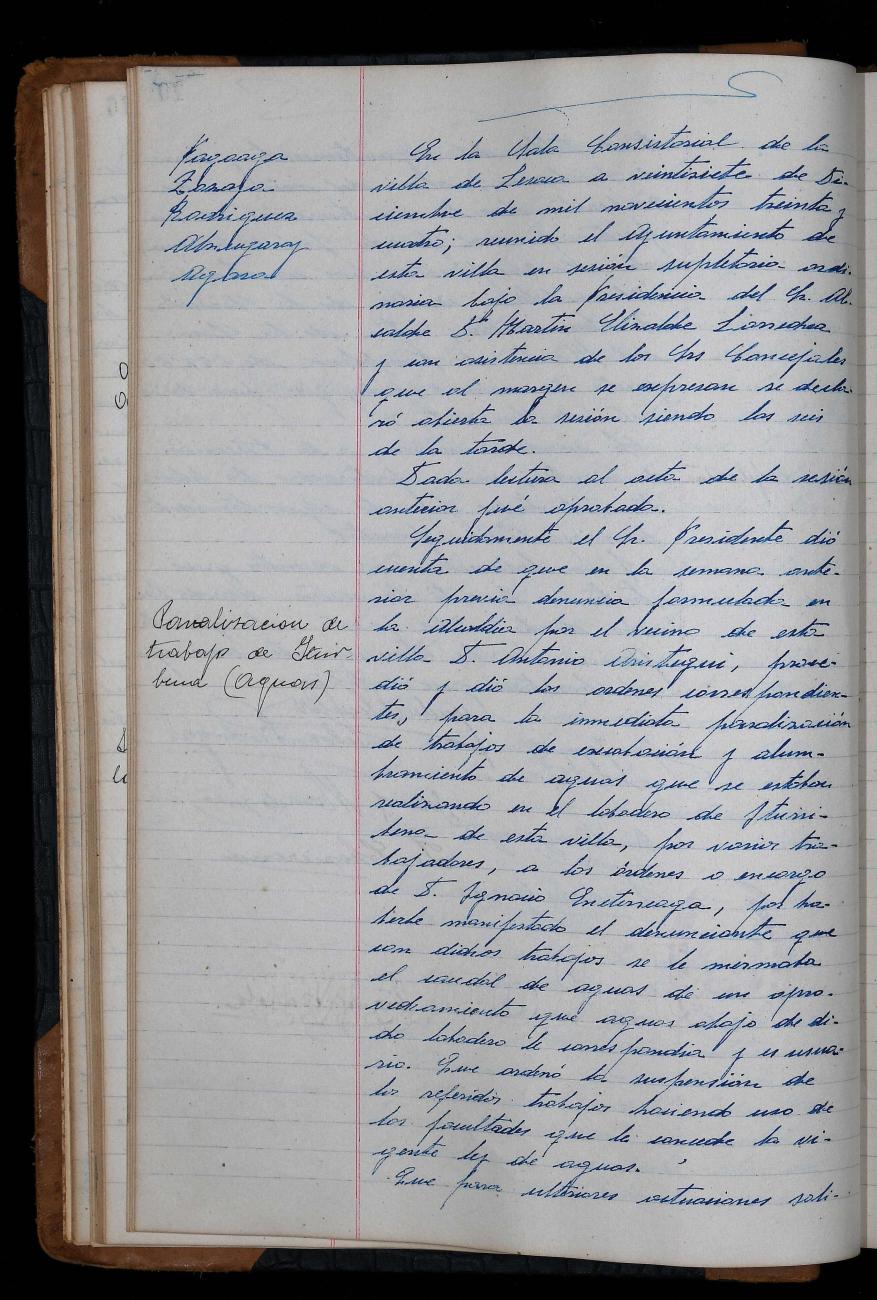 Fagoaga
Zozaya
Rodriguez
Almandoz
En la Sala Consistorial de la
villa de Lesaca a veintisiete de Di-
ciembre de mil novecientos treinta y
cuatro; reunido el Ayuntamiento de
esta villa en sesión supletoria ordi-
naria bajo la Presidencia del Sr. Al-
calde D. Martin Elizalde Larrechea
y con asistencia de los Srs Concejales
que al margen se expresan se decla-
ró abierta la sesión siendo las seis
de la tarde.
Dada lectura al acta de la sesión
anterior fué aprobada.
Seguidamente el Sr. Presidente dió
cuenta de que en la semana ante-
rior previa denuncia formulada en
la Alcaldia por el vecino de esta
villa D. Antonio Aristegui, proce-
dió y dió las ordenes correspondien-
tes, para la inmediata paralización
de trabajos de excabación y alum-
bramiento de aguas que se estaban
realizando en el labadero de Iturri-
bena de esta villa, por varios tra-
bajadores, a las órdenes o encargo
de D. Ignacio Enetineaga, por ha-
berle manifestado el denunciante que
con dichos trabajos se le mermaba
el caudal de aguas de un apro-
vechamiento que aguas abajo de di-
cho labadero le correspondia y es usua-
rio. Que ordenó la suspensión de
los referidos trabajos haciendo uso de
las facultades que le concede la vi-
gente ley de aguas.
Que para ulteriores actuaciones soli-
Paralización de
trabajo de Iturri-
bena (aguas)